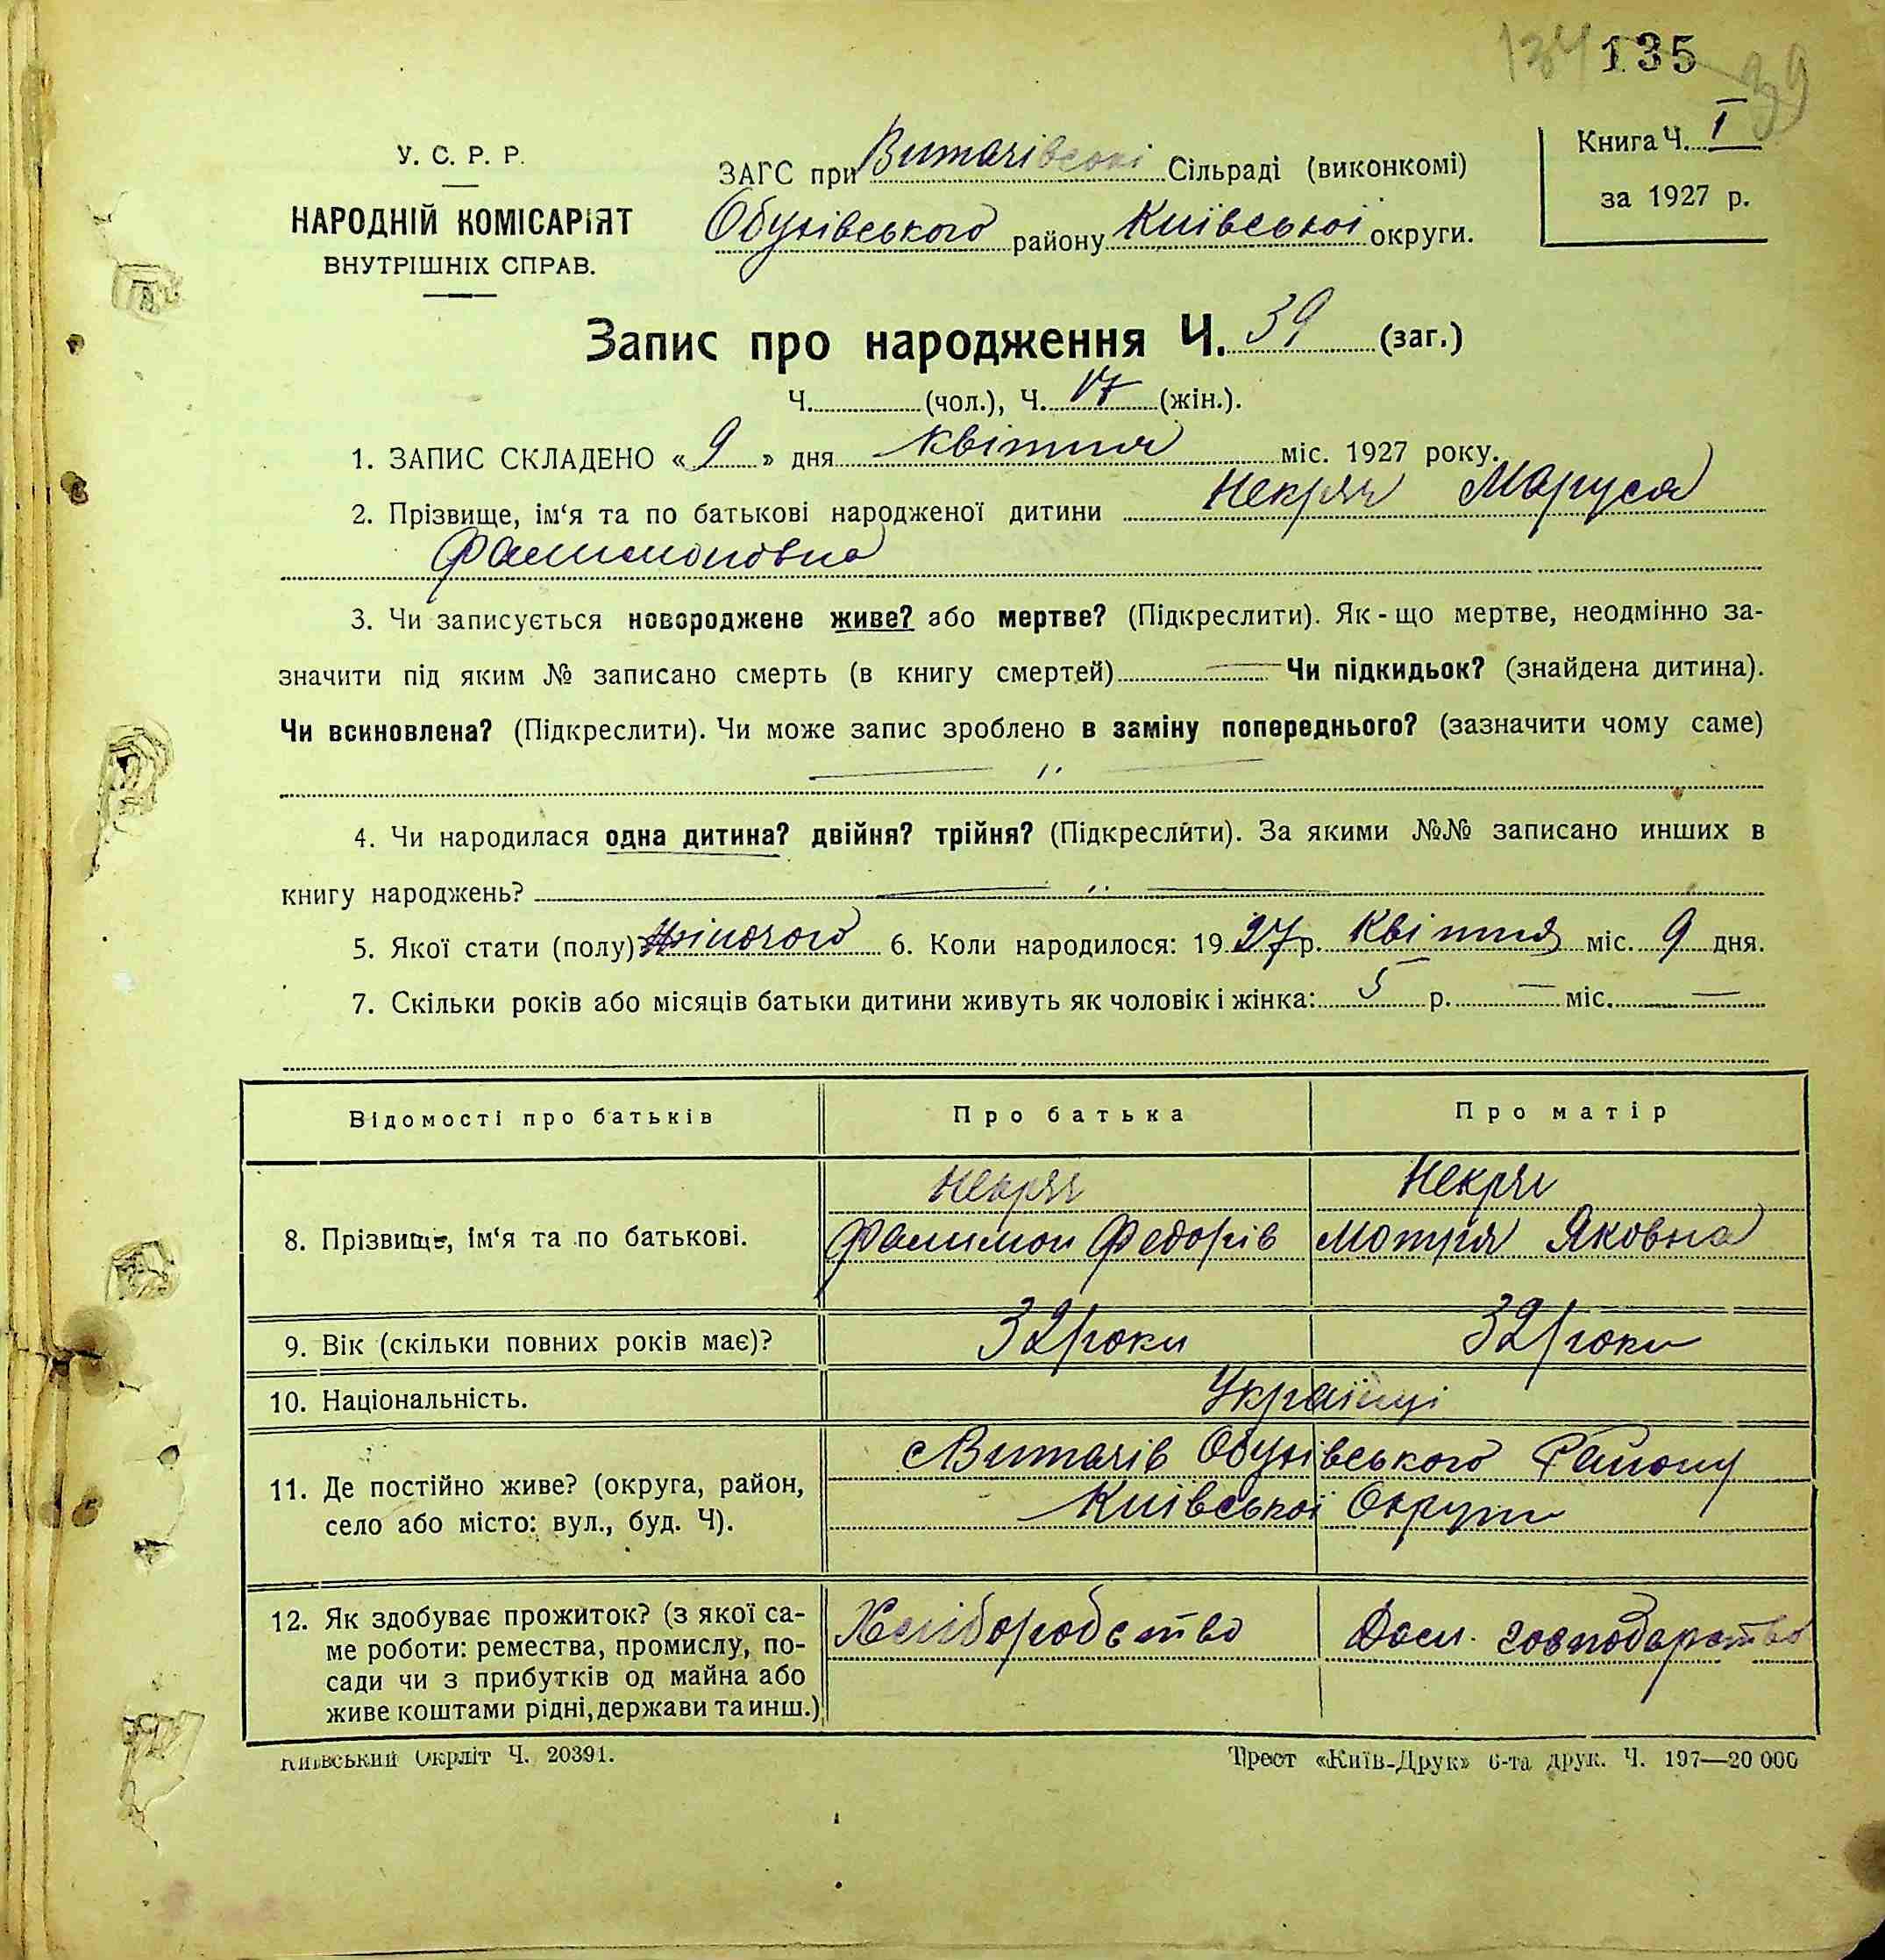 134 135 39
У. С. Р. Р.
НАРОДНІЙ КОМІСАРІЯТ
ВНУТРІШНІХ СПРАВ.
ЗАГС при Витачівській Сільраді (виконкомі)
Обухівського району Київської округи.
Книга Ч. I
за 1927 р.
Запис про народження Ч. 39 (заг.)
Ч. (чол.), Ч. 17 (жін.).
1. ЗАПИС СКЛАДЕНО « 9 » дня квітня міс. 1927 року.
2. Прізвище, ім‘я та по батькові народженої дитини Некряч Маруся
Филимоновна
3. Чи записується новороджене живе? або мертве? (Підкреслити). Як-що мертве, неодмінно за-
значити під яким № записано смерть (в книгу смертей) — Чи підкидьок? (знайдена дитина).
Чи всиновлена? (Підкреслити). Чи може запис зроблено в заміну попереднього? (зазначити чому саме)
— ״ —
4. Чи народилася одна дитина? двійня? трійня? (Підкреслити). За якими №№ записано инших в
книгу народжень? — ״ —
5. Якої стати (полу) жіночого 6. Коли народилося: 1927 р. Квітня міс. 9 дня.
7. Скільки років або місяців батьки дитини живуть як чоловік і жінка: 5 р. — міс. —
Відомості про батьків Про батька Про матір
8. Прізвище, ім‘я та по батькові.
Некряч Некряч
Филимон Федорів Мотря Яковна
9. Вік (скільки повних років має)? 32 роки 32 роки
10. Національність. Українці
11. Де постійно живе? (округа, район,
село або місто: вул., буд. Ч).
с Витачів Обухівського Району
Київської Округи
12. Як здобуває прожиток? (з якої са-
ме роботи: ремества, промислу, по-
сади чи з прибутків од майна або
живе коштами рідні, держави та инш.)
Хліборобство господарство
Київський Окрліт Ч. 20391.
Трест «Київ-Друк» 6-та друк. Ч. 197—20 000